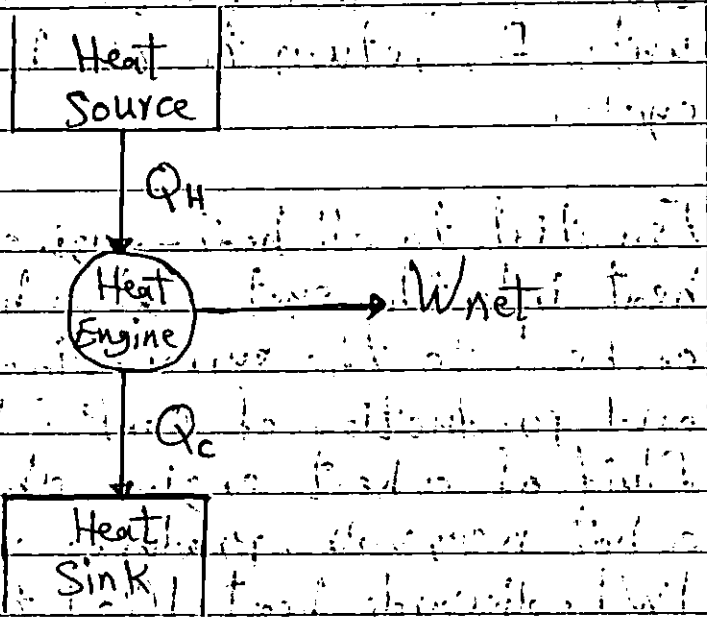 Heat
Source
Q_H
Heat
Engine
W_net
Q_c
Heat
Sink